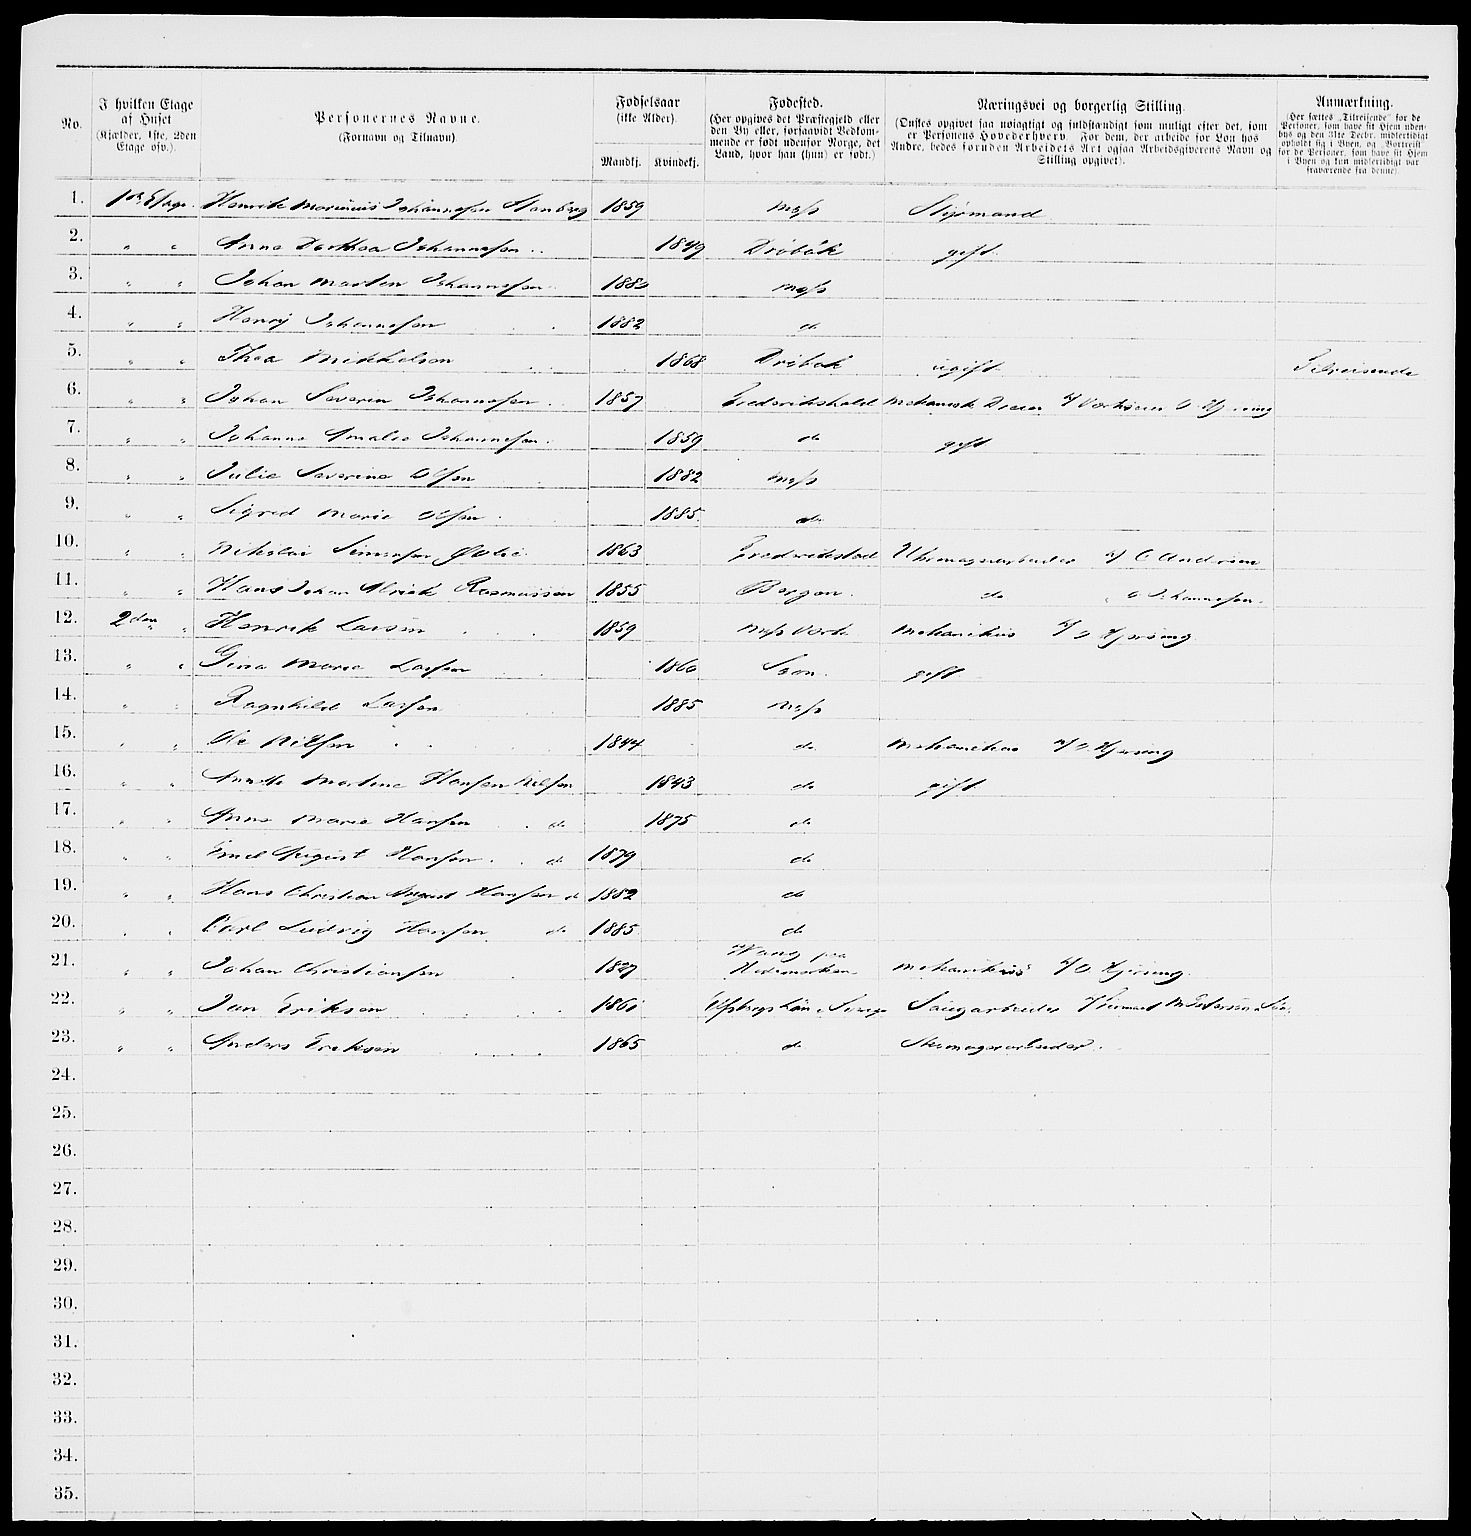 No.
I hvilken Etage
af Huset
(Kjælder, 1ste, 2den
Etage osv.).
Personernes Navne.
(Fornavn og Tilnavn)
Fødselsaar
(ikke Alder).
Mandkj. Kvindekj.
Fødested.
(Her opgives det Præstegjeld eller
den By eller, forsaavidt Vedkom-
mende er født udenfor Norge, det
Land, hvor han (hun) er født.)
Næringsvei og borgerlig Stilling.
(Ønskes opgivet saa nøiagtigt og fuldstændigt som muligt efter det, som
er Personens Hovederhverv. For dem, der arbeide for Løn hos
Andre, bedes foruden Arbeidets Art ogsaa Arbeidsgiverens Navn og
Stilling opgivet).
Anmærkning.
(Her sættes „Tilreisende" for de
Personer, som have sit Hjem uden-
bys og den 31te Decbr. midlertidigt
opholdt sig i Byen, og „Bortreist"
for de Personer, som have sit Hjem
i Byen og kun midlertidigt var
fraværende fra denne).
1. 1ste Etage Henrik Marinius Johannesen 1859 Moss Styrmand
2. " " Anna Dorthea Johannesen 1849 Drøbak gift
3. " " Johan Martin Johannesen 1880 Moss
4. " " Henrij Johannesen 1882 do
5. " " Thea Mikkelsen 1868 Drøbak ugift Tilreisende
6. " " Johan Severin Johannesen 1857 Fredrikshald Mekanisk
7. " " Johanne Amalie Johannesen 1859 do gift
8. " " Julie Severine Olsen 1882 Moss
9. " " Sigrid Marie Olsen 1885 do
10. " " Nikolai Simensen 1863 Fredrikstad
11. " " Hans Johan Alrick Rasmussen 1855 Bergen do " Johannesen
12. 2den " Henrik Larsen 1859 Mekanikus
13. " " Gina Marie Larsen 1860 Soon gift
14. " " Ragnhild Larsen 1885 Moss
15. " " Ole Nilsen 1844 do Mekanikus
16. " " Annette Martine Hansen Nilsen 1843 do gift
17. " " Anna Marie Hansen do 1875 do
18. " " Emil August Hansen do 1879 do
19. " " Hans Christian August Hansen do 1882 do
20. " " Carl Ludvig Hansen do 1885 do
21. " " Johan Christiansen 1827 Wang paa
Hedemarken Mekanikus
22. " " Jan Eriksen 1861 Saugarbeider
23. " " Anders Eriksen 1865 do Skomagerarbeider
24.
25.
26.
27.
28.
29.
30.
31.
32.
33.
34.
35.